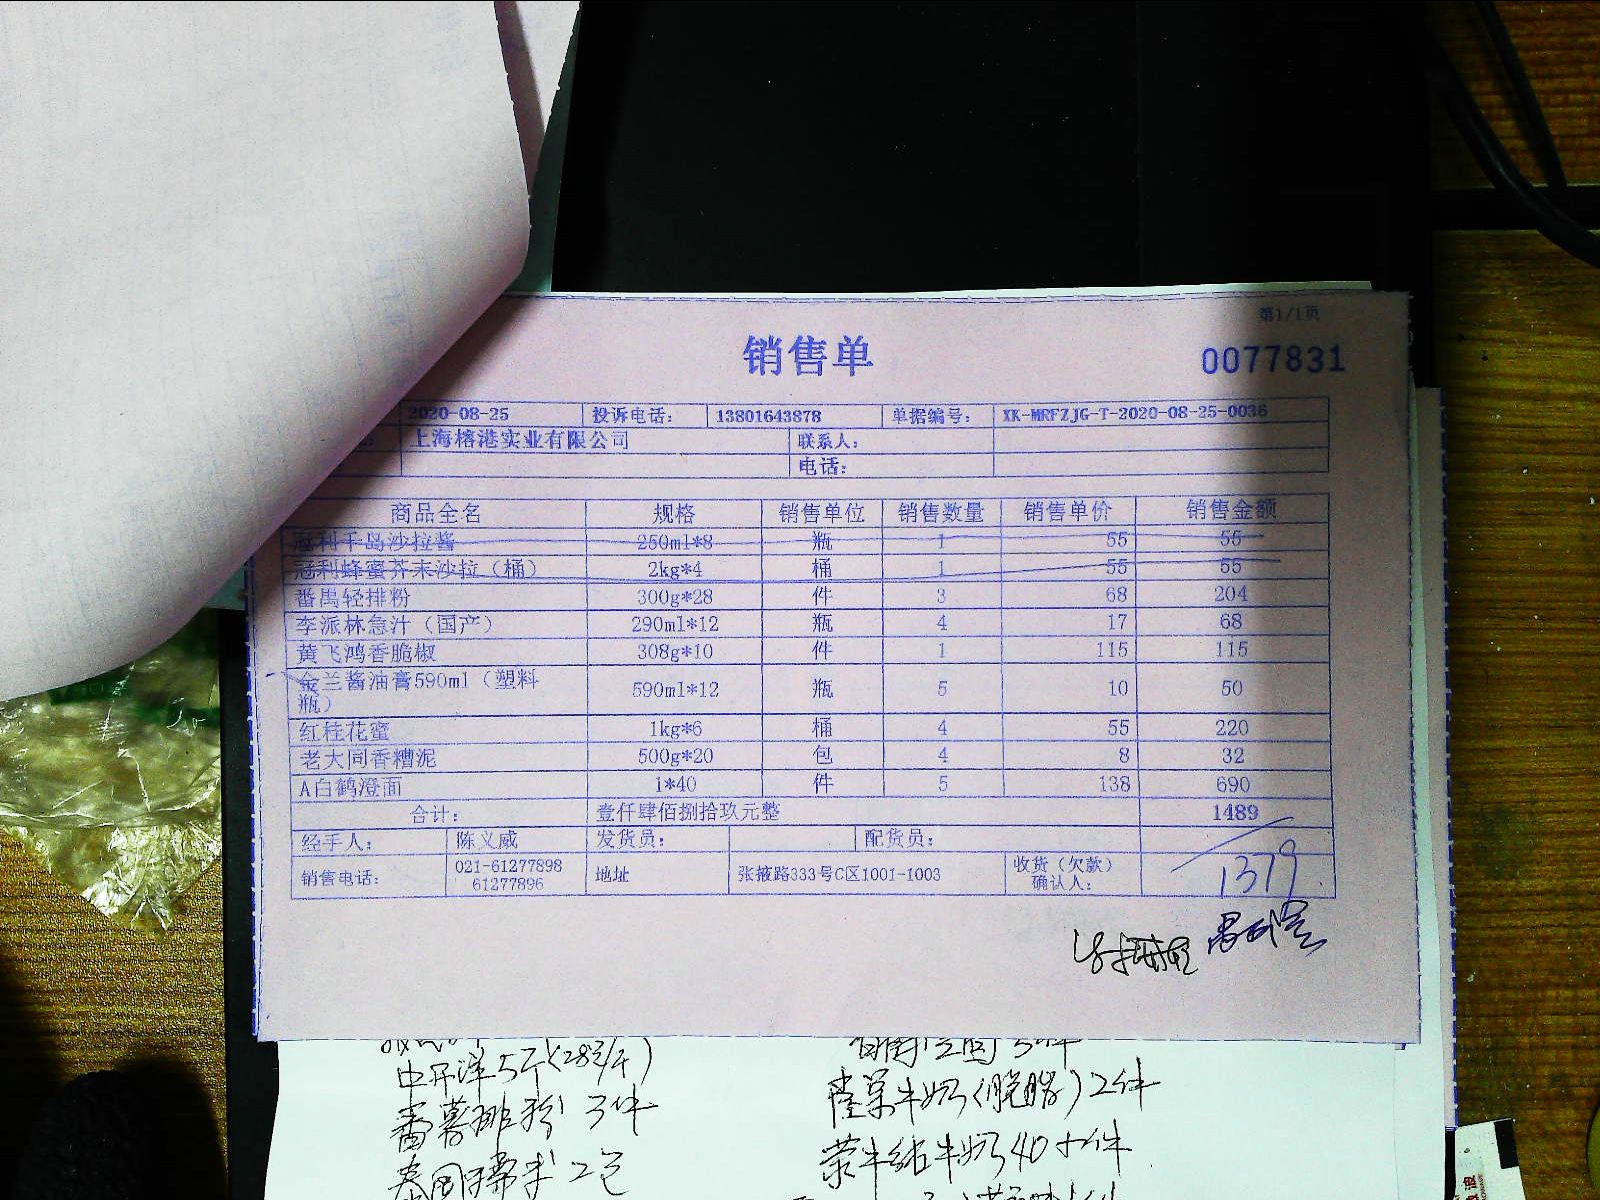 第1/1页
销售单
0077831
2020-08-25 投诉电话: 13801643878 单据编号: XK-MRFZJG-T-2020-08-25-0036
上海榕港实业有限公司 联系人:
电话:
商品全名 规格 销售单位 销售数量 销售单价 销售金额
冠利千岛沙拉酱 250ml*8 瓶 1 55 55
冠利蜂蜜芥末沙拉（桶） 2kg*4 桶 1 55 55
番禺轻排粉 300g*28 件 3 68 204
李派林急汁（国产） 290ml*12 瓶 4 17 68
黄飞鸿香脆椒 308g*10 件 1 115 115
金兰酱油膏590ml（塑料瓶） 590ml*12 瓶 5 10 50
红桂花蜜 1kg*6 桶 4 55 220
老大同香糟泥 500g*20 包 4 8 32
A白鹤澄面 1*40 件 5 138 690
合计: 壹仟肆佰捌拾玖元整 1489
经手人: 陈义威 发货员: 配货员:
销售电话: 021-61277898 61277896 地址 张掖路333号C区1001-1003 收货（欠款）确认人: 1379
中开洋5斤(28元/斤)
番薯排粉 3件
牛奶(脱脂)2件
蒙牛纯牛奶40小件